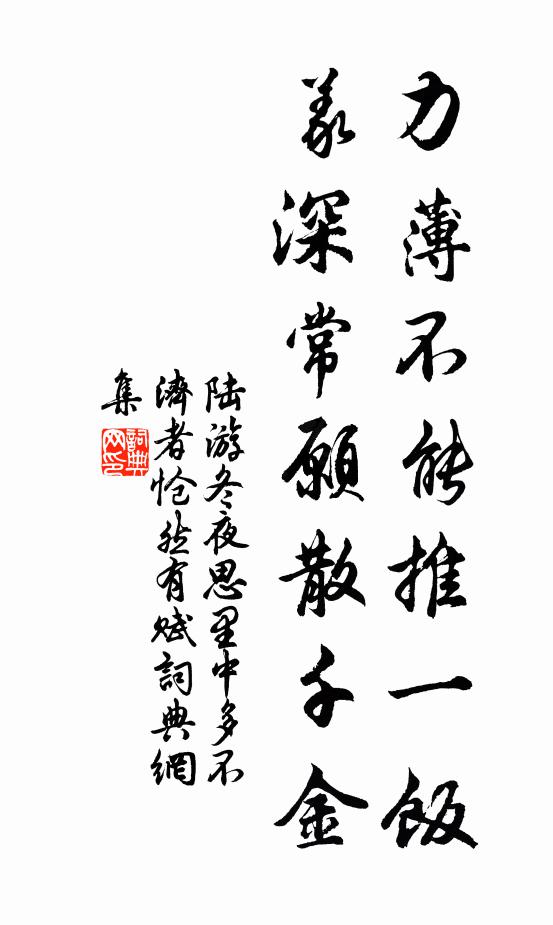 力薄不能推一飯
義深常願散千金
陸游冬夜思里中多不
濟者愴然有賦詞典網
集
詞典網印